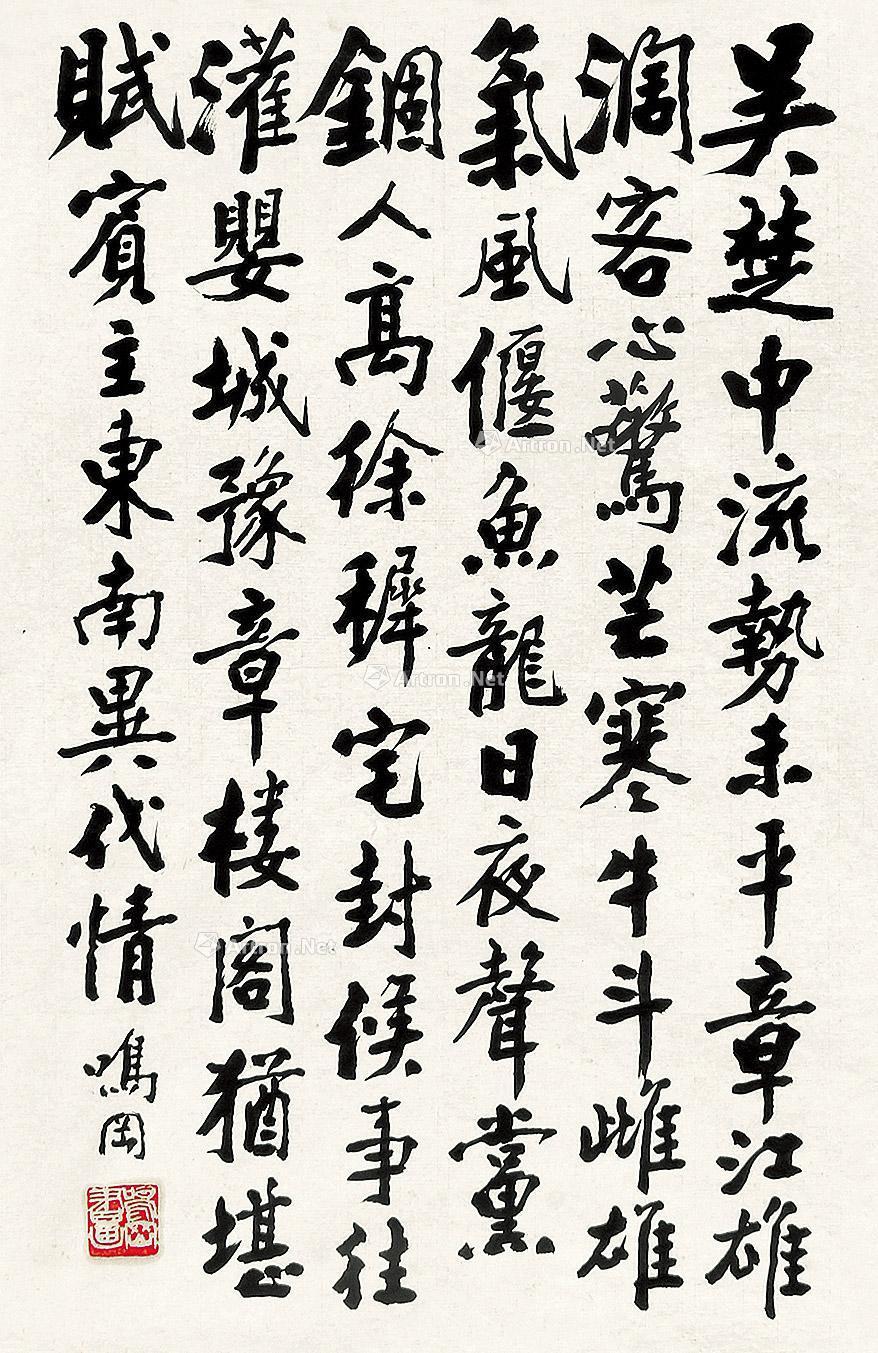 吴楚中流勢未平章江雄
濶客心驚芒寒牛斗雌雄
氣風偃魚龍日夜聲黨
錮人高徐穉宅封侯事往
灌嬰城豫章樓閣猶堪
賦賓主東南異代情
鳴岡
Artron.Net
Artron.Net
Artron.Net